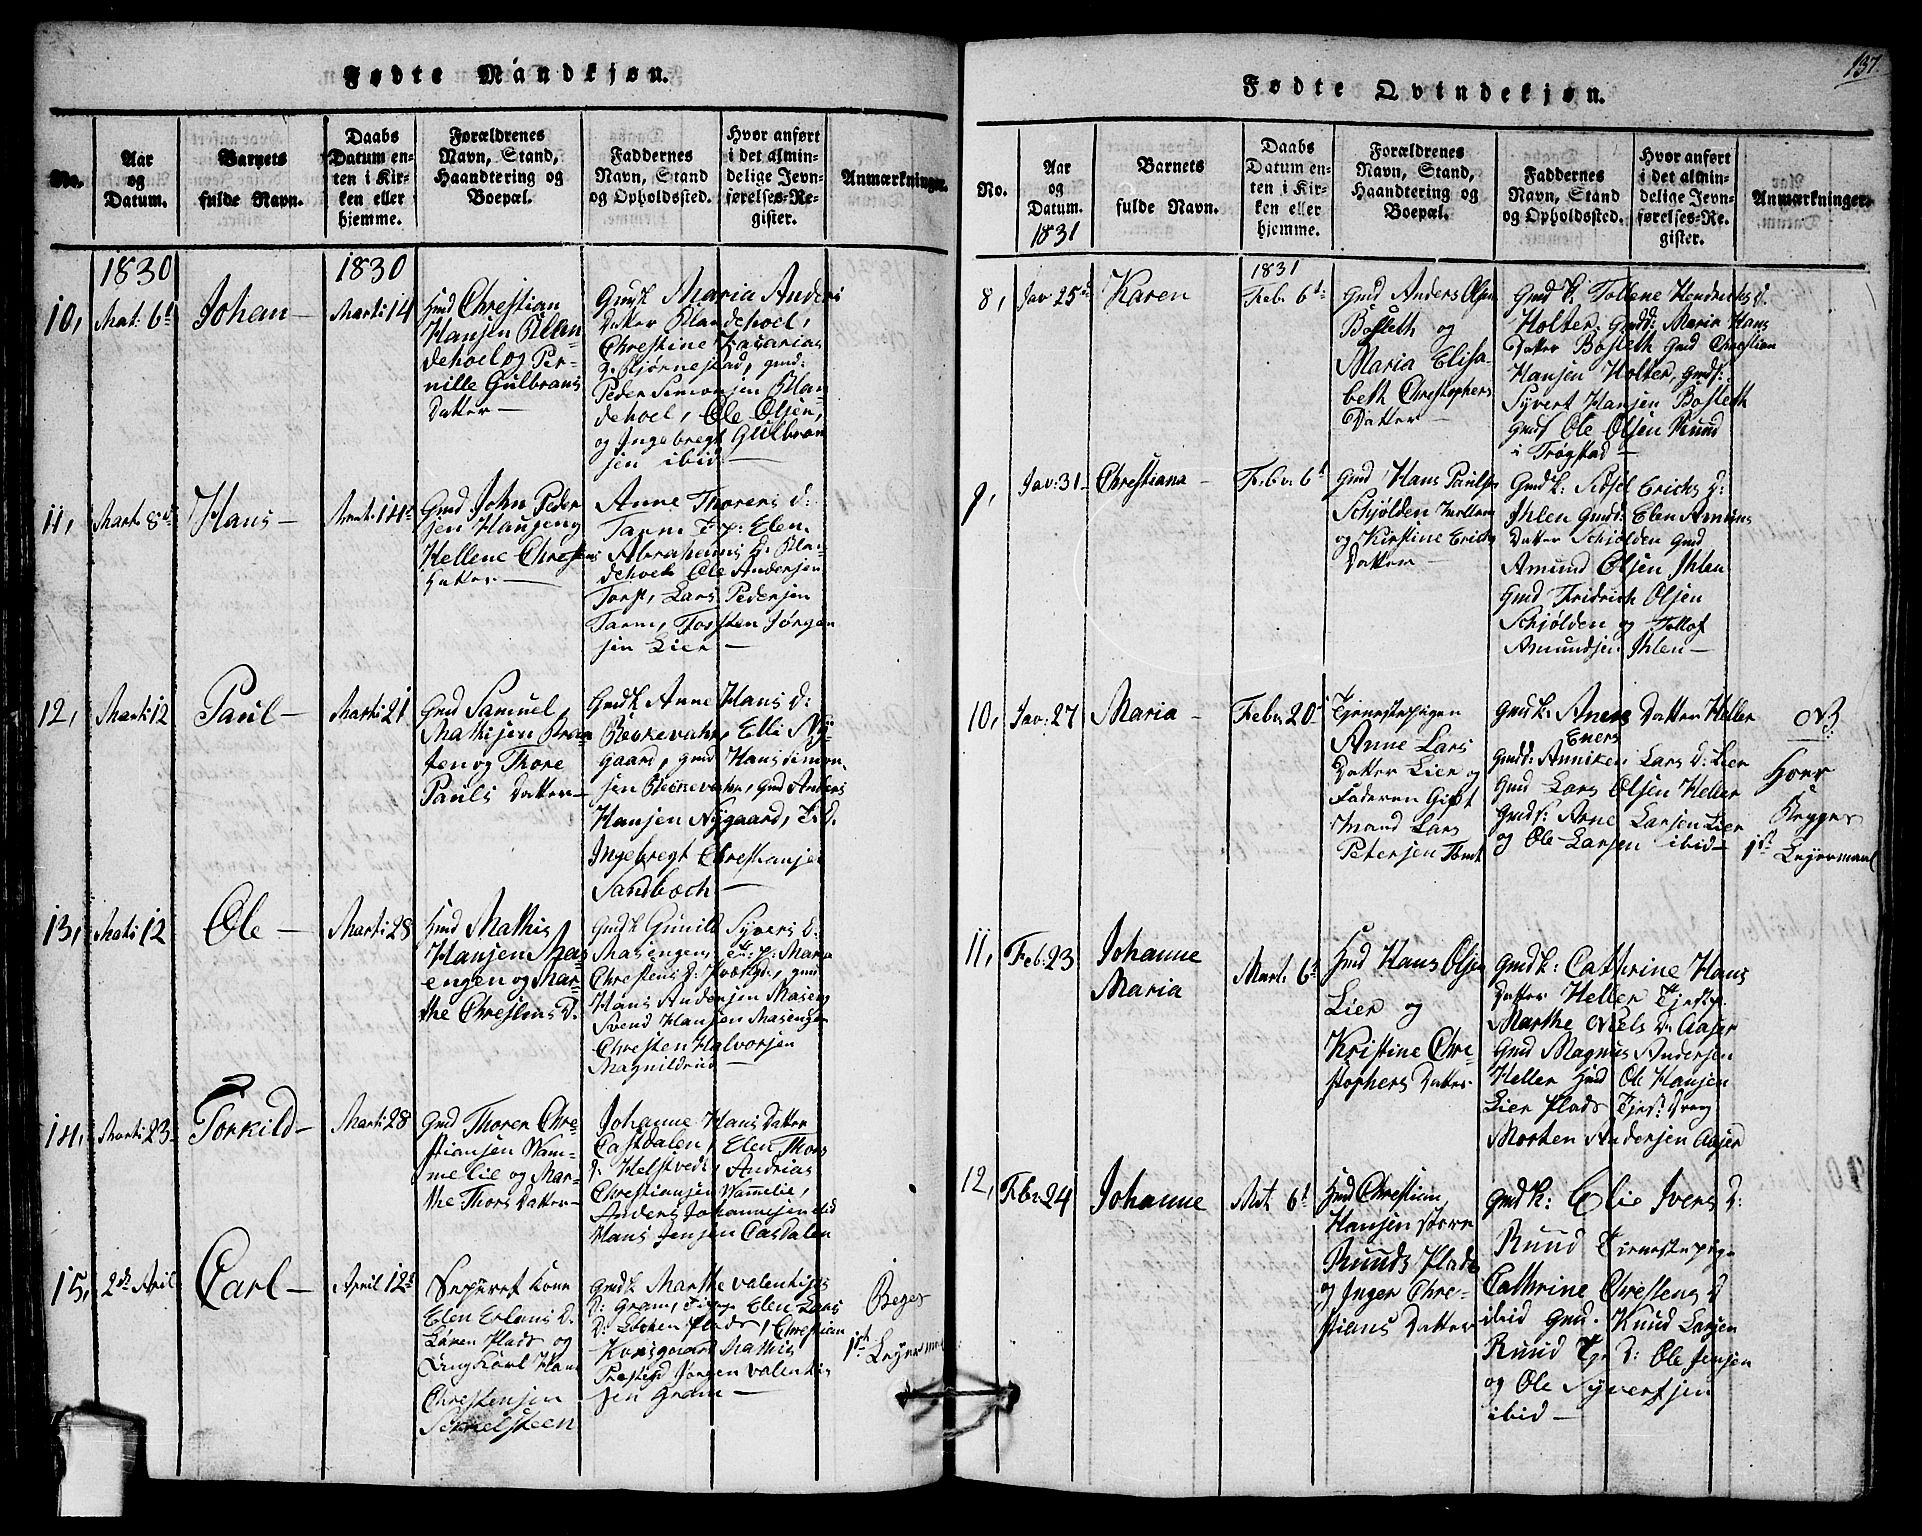 Fødte Mandkjøn.
No.
Aar
og
Datum.
Barnets
fulde Navn.
Daabs
Datum en-
ten i Kir-
ken eller
hjemme.
Forældrenes
Navn, Stand,
Haandtering og
Boepæl.
Faddernes
Navn, Stand
og Opholdssted.
Hvor anført
i det almin-
delige Jevn-
førelses-Re-
gister.
Anmærkninger.
1830
1830
10,
Mat: 6t
Johan
Marti 14
Gmd Christian
Hansen Blan
dehoel og Per-
nille Gulbrans
Datter
Gmdk Maria Anders
Datter Blandehoel,
Christine Zacarias
D. Bjørnestad, gmd:
Peder Simonsen Blan
dehoel, Ole Olsen,
og Ingebregt Gulbran
sen ibid
11,
Mart: 8de
Hans
Mart: 14t
Gmd John Peder
sen Haugen og
Hellene Christens
Datter
Anne Thorens D:
Tarm Tp: Elen
Abrahams D. Blan-
dehoel Ole Andersen
Torp, Lars Pedersen
Tarm, Torsten Jørgen
sen Lier
12,
Marti 12
Paul
Marti: 21
Gmd Samuel
Mathisen
og Thore
Pauls Datter
Gmdk Anne Hans D:
Elli Ny-
gaard, gmd Hans Simon
sen gmd Anders
Hansen Nygaard, T. D.
Ingebregt Christiansen
Sandbæch
13,
Mati 12
Ole
Marti: 28
Gmd Mathis
Hansen Mas
engen og Mar-
the Christens D.
Gmdk Gunild Syvers D:
Masengen T: p: Maria
Christens D: gmd
Hans Andersen Maseng
Svend Hansen Masengen
Christen Halvorsen
Magnildrud
14,
Marti 23
Torkild
Marti: 28
Gmd Thoren Chri-
stiansen Wam-
melie og Mar-
the Thors Datter
Johanne Hans Datter
Casdalen, Elen Thors
D: Helstvedt, Andrias
Christiansen Wammelie,
Anders Johannesen ibid
Hans Jensen Casdalen
15,
2de April
Carl
April 12t
Separet Kone
Elen Erlans D.
Løren Plads og
Ungkarl Hans
Christensen
Semelsteen
Gmdk Marthe Valentins
D: Gram, Elen Lars
D: Plads, Christian
Korsgaard Mathis
Jørgen Valentin
sen Gram
Beges
1st Leyermaal
137.
Fødte Qvindekjøn.
No.
Aar
og
Datum.
1831
Barnets
fulde Navn.
Daabs
Datum en-
ten i Kir-
ken eller
hjemme.
1831
Forældrenes
Navn, Stand,
Haandtering og
Boepæl.
Faddernes
Navn, Stand
og Opholdssted.
Hvor anført
i det almin-
delige Jevn-
førelses-Re-
gister.
Anmærkninger.
8,
Jav: 25de
Karen
Feb. 6te
Gmd Anders Olsen
Bosleth og
Maria Elisa-
beth Christophers
Datter
Gmd k: Tollene Hendrichs D.
Holter. Gmdd: Maria Hans
Datter Bosleth Gmd Christian
Hansen Holter, Gmds:
Syvert Hansen Bosleth
Gmds Ole Olsen Ruud
i Trøgstad
9,
Jav: 31
Christiana
Febv. 6t
Gmd Hans Paulsen
Schjølden
og Kirstine Erichs
Datter
Gmdk: Sidsel Erichs D:
Ihlen Gmdd: Elen Amuns
Datter Schjølden Gmd
Amund Olsen Ihlen
Gmd Fridrich Olsen
Schjølden og Tollof
Amundsen Ihlen
10,
Jav: 27
Maria
Febv: 20t
Tjenestepigen
Anne Lars
Datter Lier og
Faderen Gift
Mand Lars
Petersen
Gmdk: Anens Datter Heller
Eners
Gmdd: Anniken Lars D: Lier
Gmd Lars Olsen Heller
Gmds: Arne Larsen Lier
og Ole Larsen ibid
NB
Hoer
Begges
1st Leyermaal
11,
Feb: 23
Johanne
Maria
Mart: 6t
Gmd Hans Olsen
Lier og
Kristine Chri-
stophers Datter
Gmdk: Cathrine Hans
Datter Heller Tjenstp.
Marthe Niels D: Aaser
Gmd Magnus Andersen
Heller Gmd Ole Hansen
Lier Plads Tjenst: Dreng
Morten Andersen Aaser
12,
Febv: 24
Johanne
Mat 6t
Gmd Christian
Hansen Store
Ruuds Plads
og Inger Chri-
stians Datter
Gmdk: Elie Ivers D:
Ruud Tienestepige
Cathrine Christens D
ibid Gmd. Knud Larsen
Ruud Tje D: Ole Jensen
og Ole Syvertsen
ibid